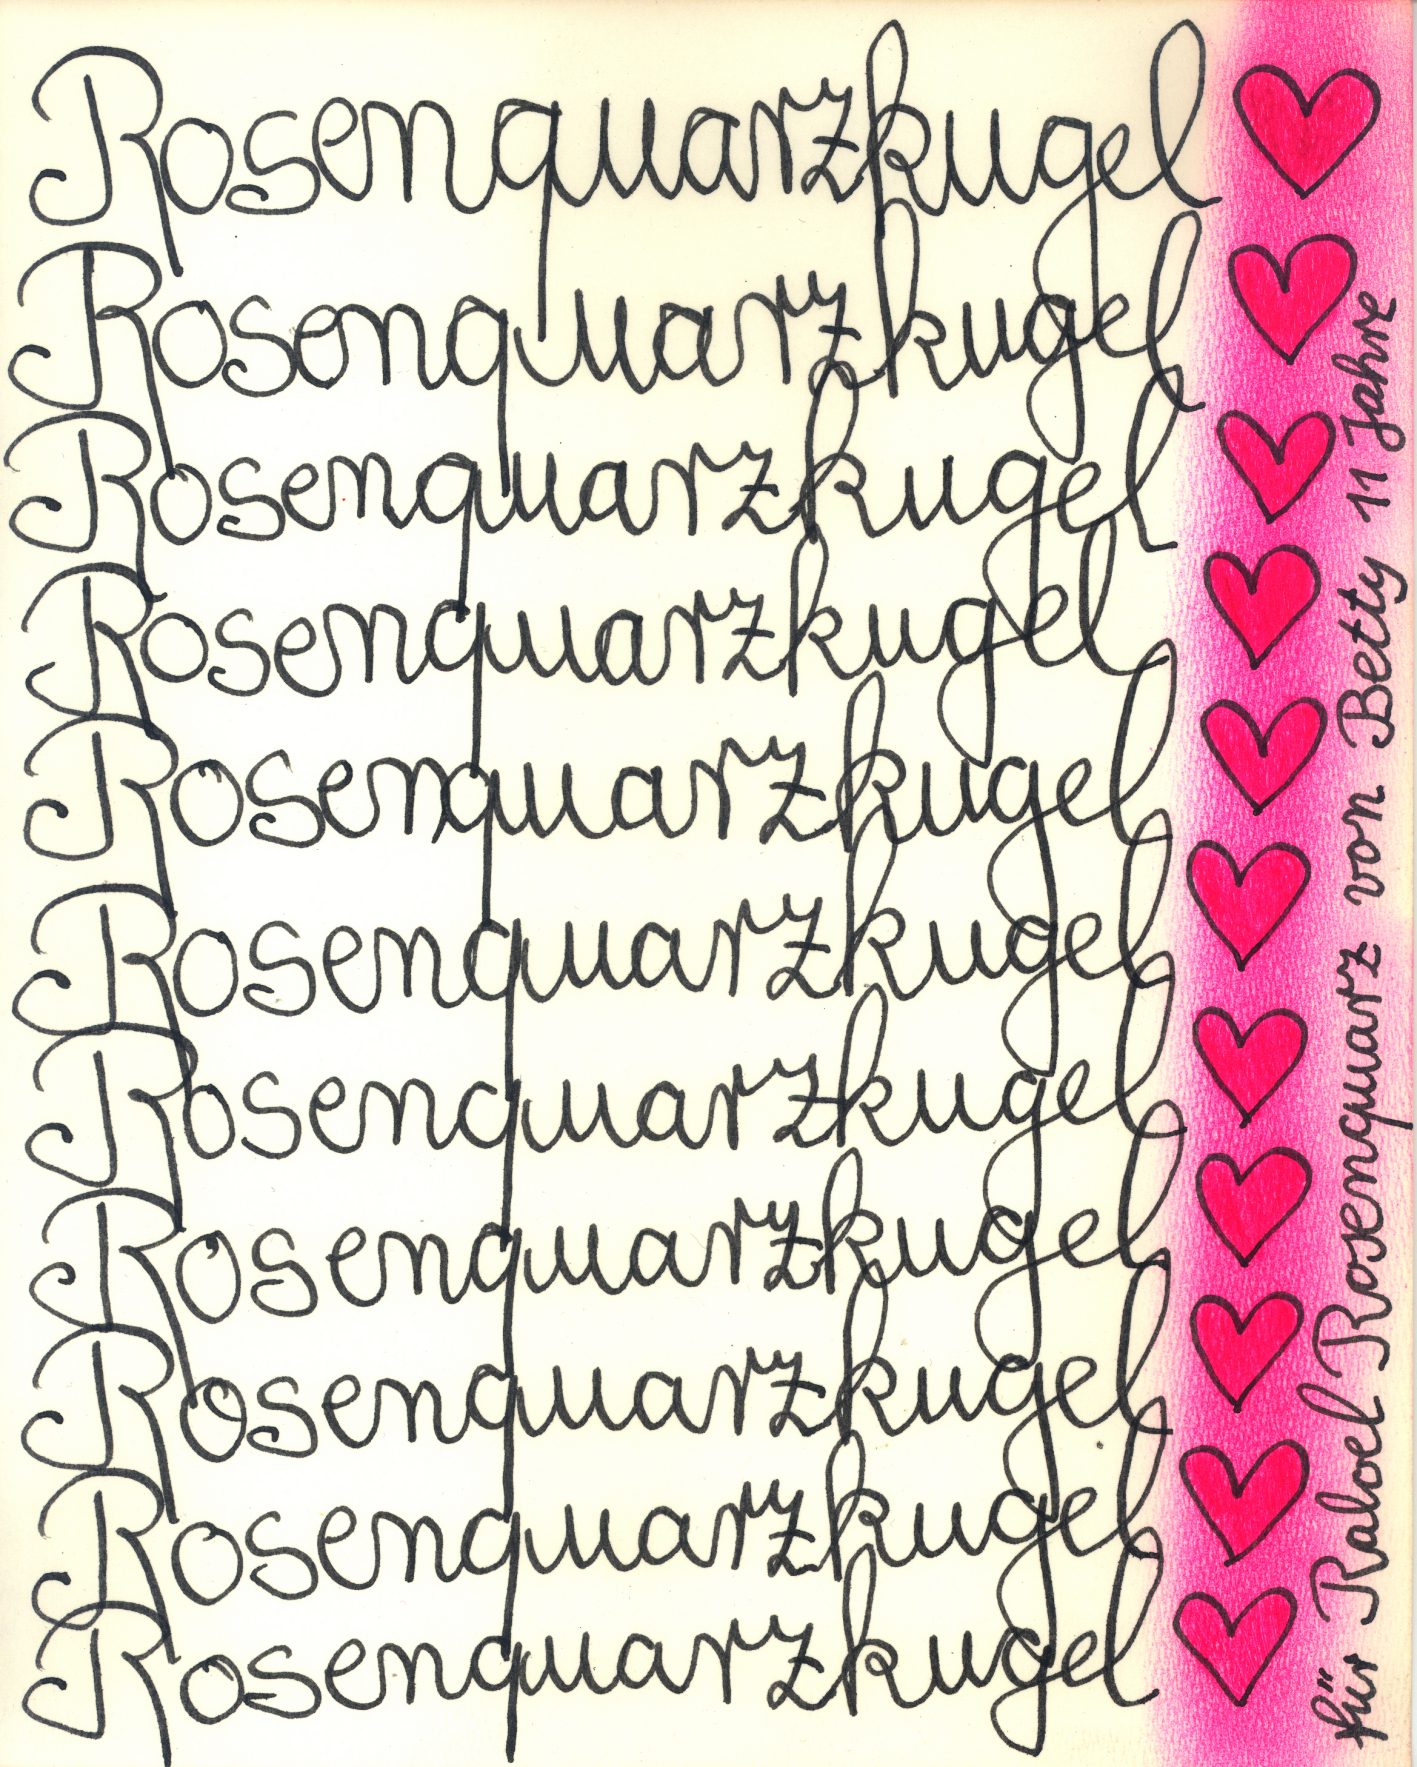 Rosenquarzkugel
Rosenquarzkugel
Rosenquarzkugel
Rosenquarzkugel
Rosenquarzkugel
Rosenquarzkugel
Rosenquarzkugel
Rosenquarzkugel
Rosenquarzkugel
Rosenquarzkugel
Rosenquarzkugel
für Rabel Rosenquarz von Betty 11 Jahre